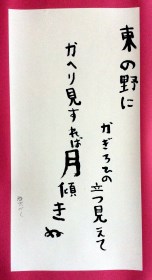 東の野に
かぎろひの立つ見えて
かへり見すれば月傾きぬ